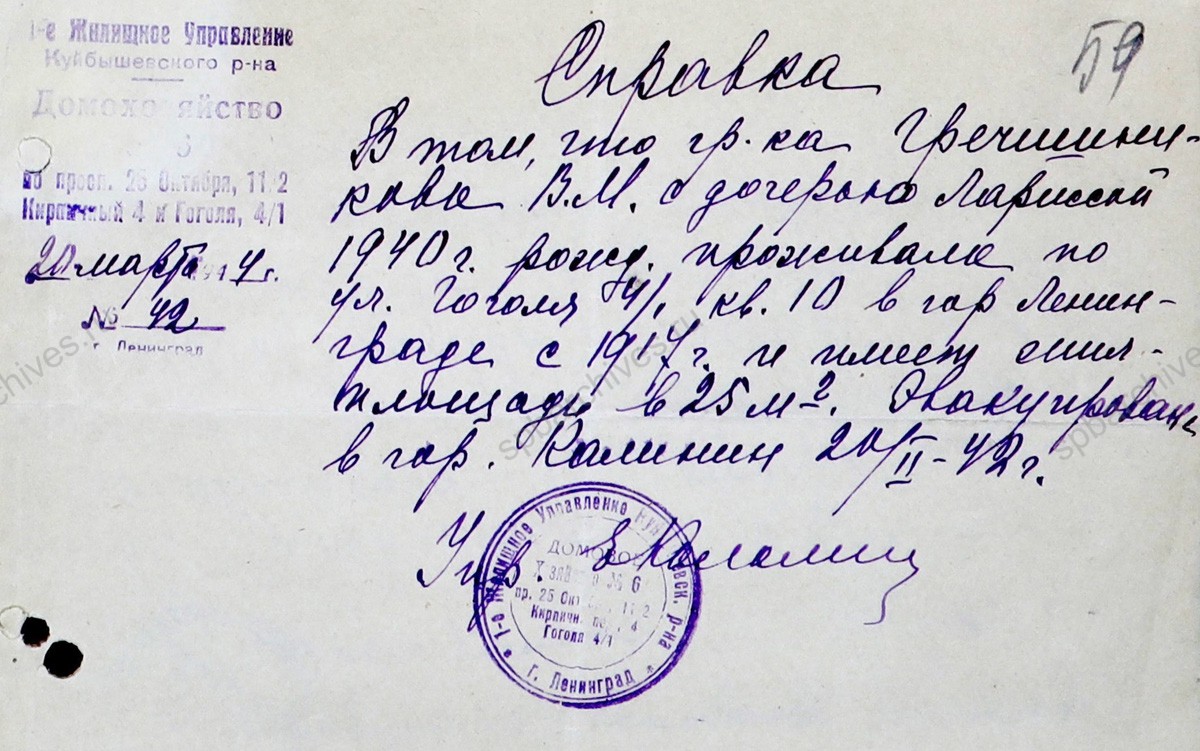 1-е Жилищное Управление
Куйбышевского р-на
Домохозяйство
6
по просп. 25 Октября, 11/2
Кирпичный 4 и Гоголя, 4/1
20 марта 1944 г.
№ 42
г. Ленинград
59
Справка
В том, что гр.ка Гречишни-
кова В.М. с дочерью Лариссой
1940 г. рожд. проживала по
ул. Гоголя 4/1 кв. 10 в гор Ленин-
граде с 1917 г. и имеет жил-
площади в 25 м2. Эвакуирована
в гор. Калинин 20/II-42 г.
Упр.
1-е Жилищное Управление Куйбышевск. р-на
г. Ленинград
ДОМОВОЕ
Хозяйство № 6
пр. 25 Окт. 11/2
Кирпичн. пер. 4
Гоголя 4/1
spbarchives.ru
spbarchives.ru
spbarchives.ru